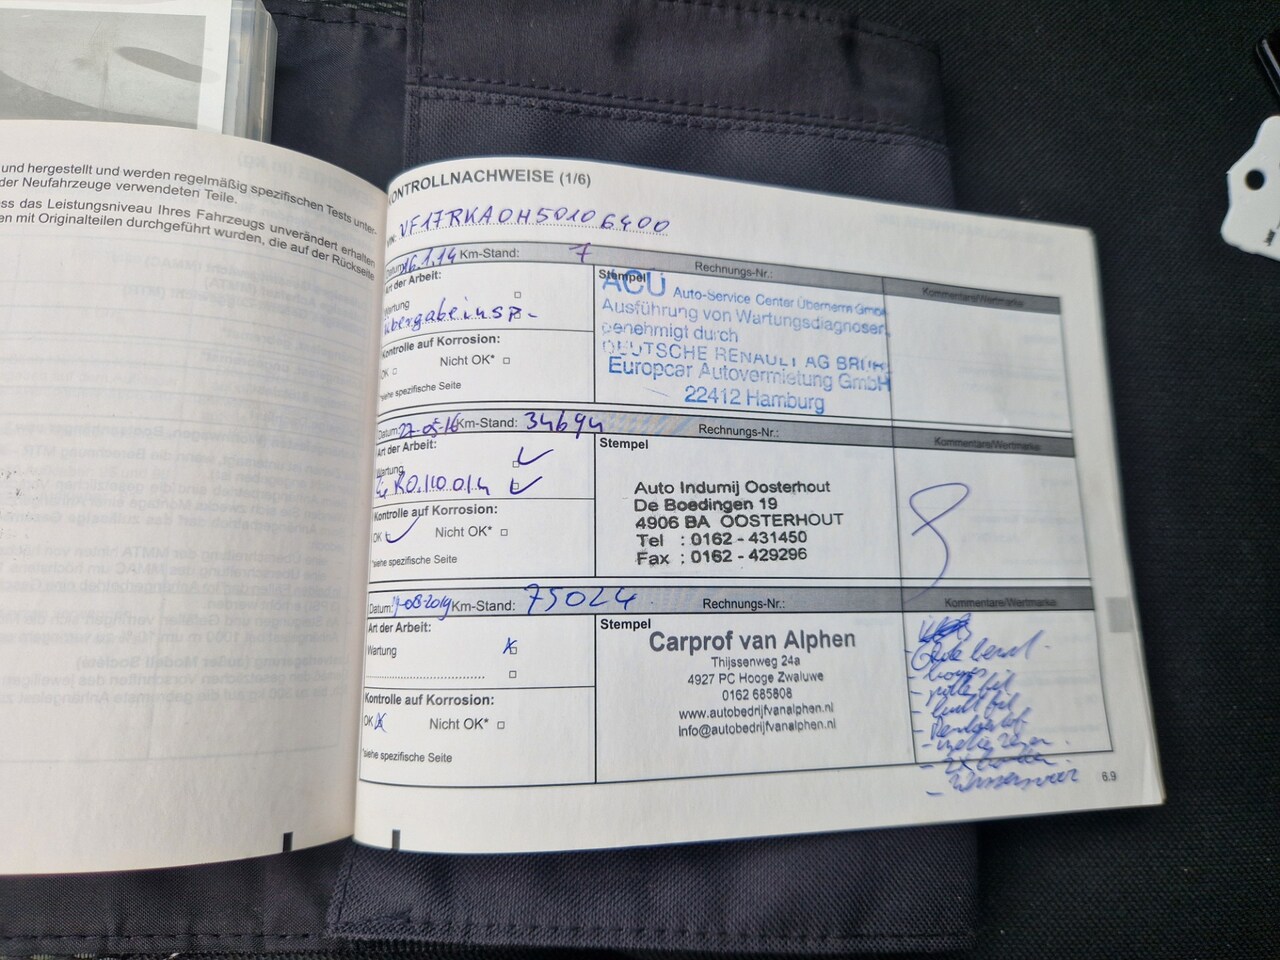 und hergestellt und werden regelmäßig spezifischen Tests unter-
der Neufahrzeuge verwendeten Teile.
ss das Leistungsniveau Ihres Fahrzeugs unverändert erhalten
en mit Originalteilen durchgeführt wurden, die auf der Rückseite
KONTROLLNACHWEISE (1/6)
VIN: VF17RKA0H50106400
Datum: 16.1.14 Km-Stand: 7 Rechnungs-Nr.: Kommentare/Wertmarke
Art der Arbeit:
Wartung
Übergabeinsp.
Kontrolle auf Korrosion:
OK Nicht OK*
*siehe spezifische Seite
Stempel
ACÜ Auto-Service Center Übernerm GmbH
Ausführung von Wartungsdiagnosen
genehmigt durch
DEUTSCHE RENAULT AG BRÜHL
Europcar Autovermietung GmbH
22412 Hamburg
Datum: 27-05-16 Km-Stand: 34694 Rechnungs-Nr.: Kommentare/Wertmarke
Art der Arbeit:
Wartung
Kontrolle auf Korrosion:
OK Nicht OK*
*siehe spezifische Seite
Stempel
Auto Indumij Oosterhout
De Boedingen 19
4906 BA OOSTERHOUT
Tel : 0162 - 431450
Fax : 0162 - 429296
Datum: 19-08-2019 Km-Stand: 75024 Rechnungs-Nr.: Kommentare/Wertmarke
Art der Arbeit:
Wartung
Kontrolle auf Korrosion:
OK Nicht OK*
*siehe spezifische Seite
Stempel
Carprof van Alphen
Thijssenweg 24a
4927 PC Hooge Zwaluwe
0162 685808
www.autobedrijfvanalphen.nl
info@autobedrijfvanalphen.nl
6.9